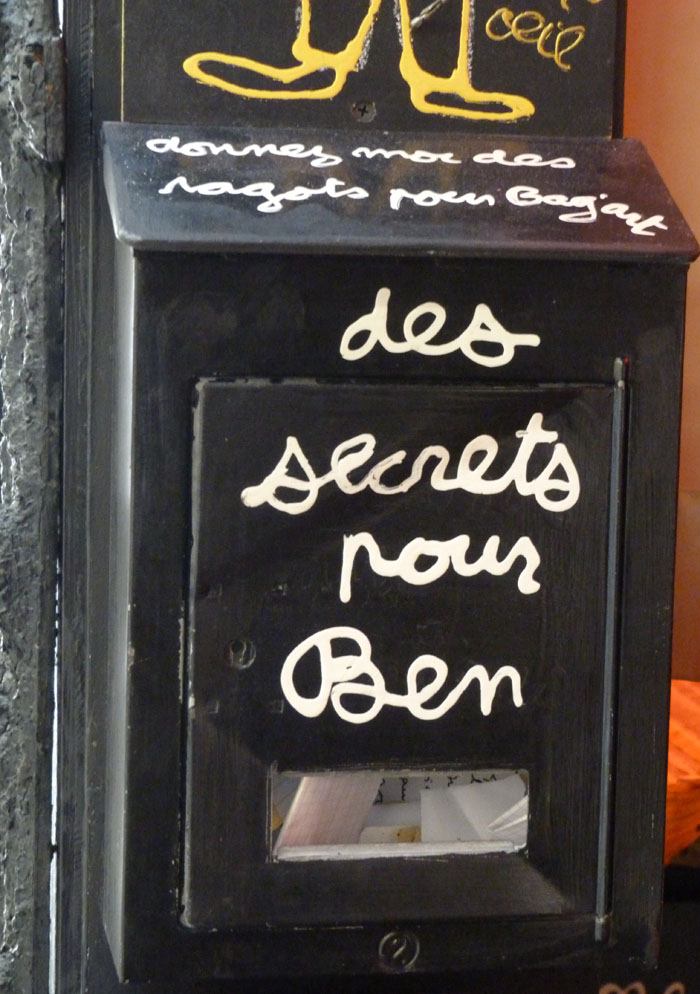 oeil
donnez moi des
ragots pour Bag'art
des
secrets
pour
Ben